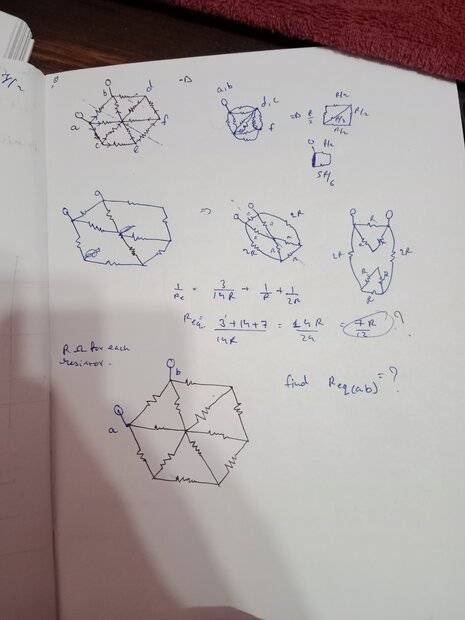 b d
a f
c e
a,b
d,c
f
=> R/2
R/2
R/2
R/2
5R/6
=>
2R
2R
R
2R 2R
R
1/Re = 3/14R + 1/R + 1/2R
Req = 3+14+7/14R = 14R/24 = 7R/12 ?
R Ω for each
resistor.
b
a
find Req(ab) = ?